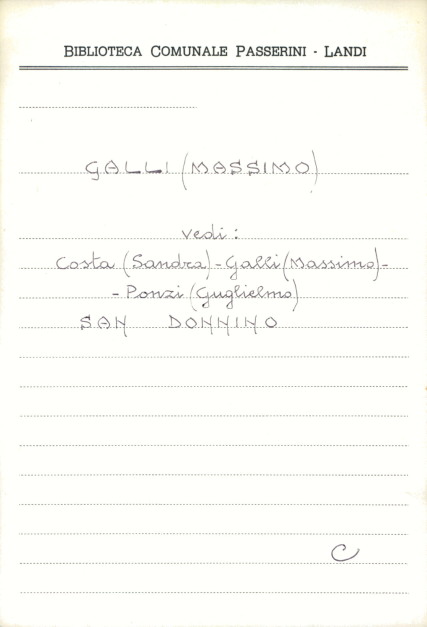 BIBLIOTECA COMUNALE PASSERINI - LANDI
GALLI (MASSIMO)
vedi :
Costa (Sandra) - Galli (Massimo) -
- Ponzi (Guglielmo)
SAN DONNINO
C